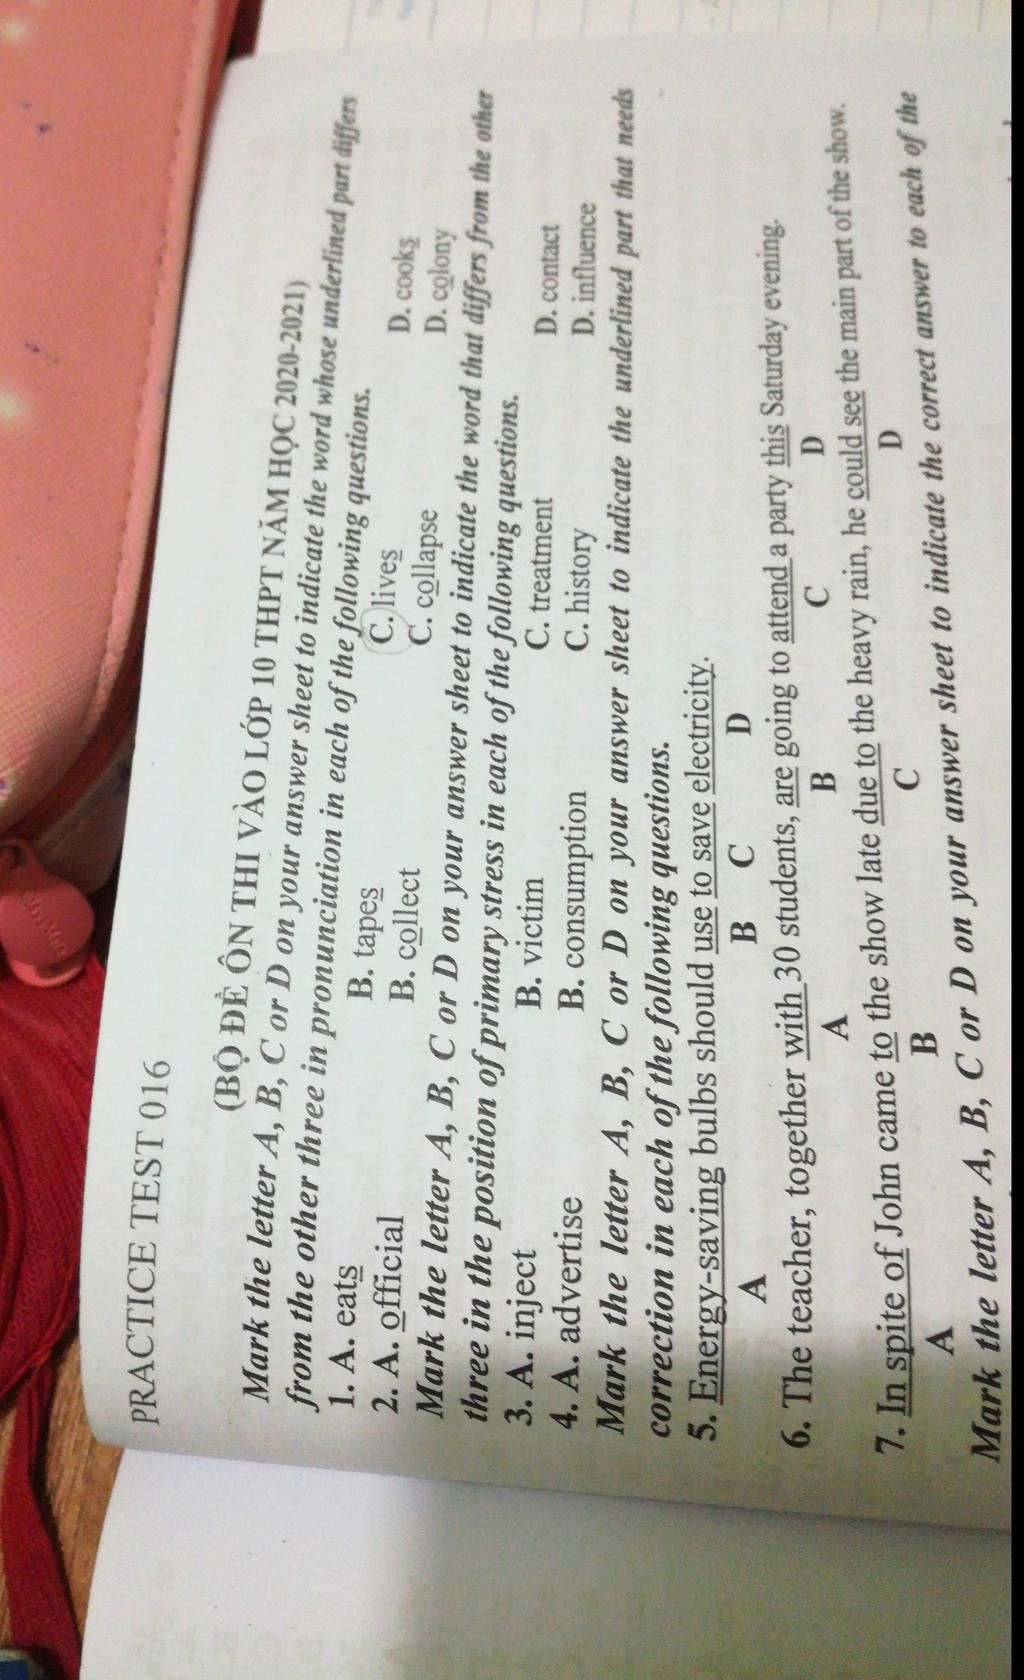 PRACTICE TEST 016
(BỘ ĐỀ ÔN THI VÀO LỚP 10 THPT NĂM HỌC 2020-2021)
Mark the letter A, B, C or D on your answer sheet to indicate the word whose underlined part differs
from the other three in pronunciation in each of the following questions.
1. A. eats B. tapes C. lives D. cooks
2. A. official B. collect C. collapse D. colony
Mark the letter A, B, C or D on your answer sheet to indicate the word that differs from the other
three in the position of primary stress in each of the following questions.
3. A. inject B. victim C. treatment D. contact
4. A. advertise B. consumption C. history D. influence
Mark the letter A, B, C or D on your answer sheet to indicate the underlined part that needs
correction in each of the following questions.
5. Energy-saving bulbs should use to save electricity.
A B C D
6. The teacher, together with 30 students, are going to attend a party this Saturday evening.
A B C D
7. In spite of John came to the show late due to the heavy rain, he could see the main part of the show.
A B C D
Mark the letter A, B, C or D on your answer sheet to indicate the correct answer to each of the